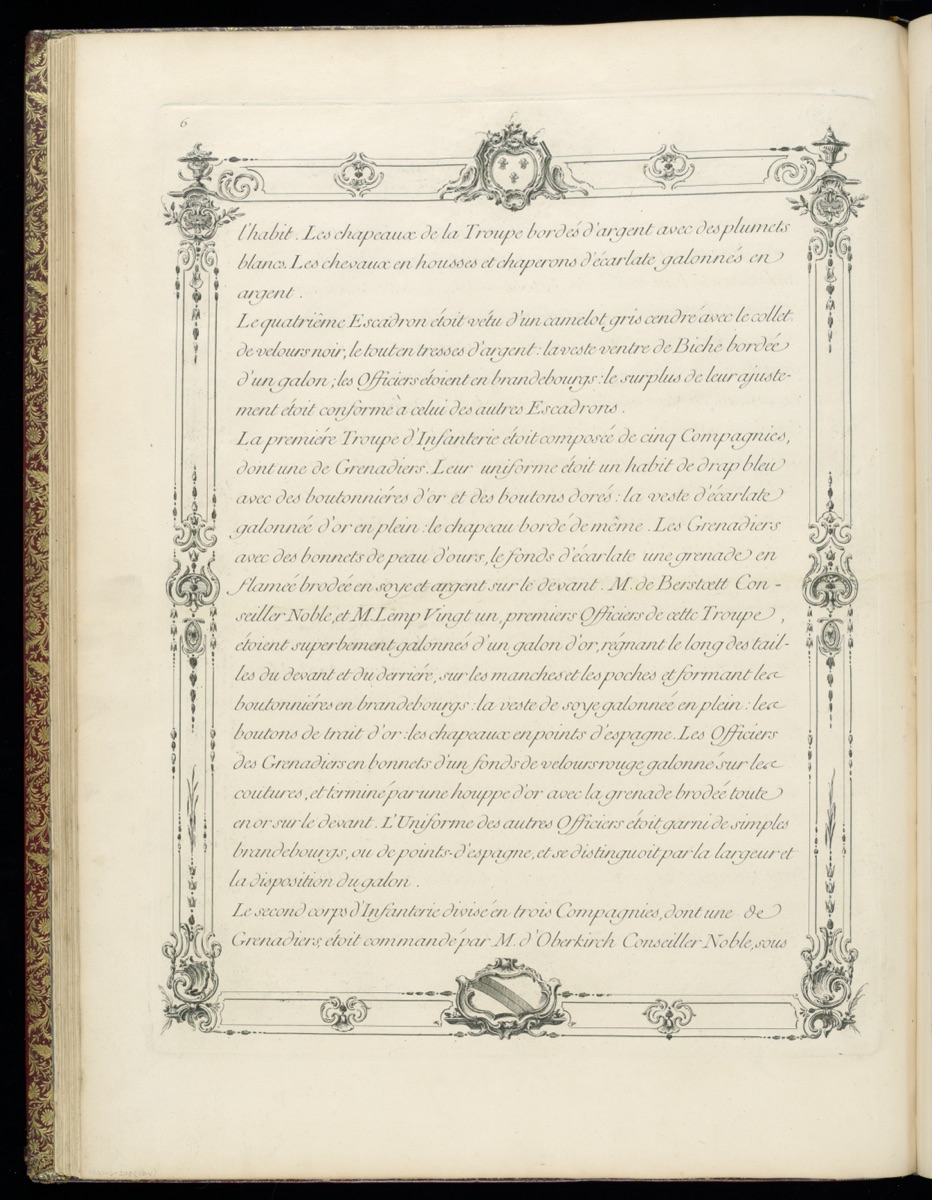 6
l'habit. Les chapeaux de la Troupe bordés d'argent avec des plumets
blancs. Les chevaux en housses et chaperons d'écarlate galonnés en
argent.
Le quatriême Escadron étoit vêtu d'un camelot gris cendré avec le collet
de velours noir, le tout en tresses d'argent : la veste ventre de Biche bordée
d'un galon ; les Officiers étoient en brandebourgs : le surplus de leur ajuste-
ment étoit conforme à celui des autres Escadrons.
La premiére Troupe d'Infanterie étoit composée de cinq Compagnies,
dont une de Grenadiers. Leur uniforme étoit un habit de drap bleu
avec des boutonniéres d'or et des boutons dorés : la veste d'écarlate
galonnée d'or en plein : le chapeau bordé de même. Les Grenadiers
avec des bonnets de peau d'ours, le fonds d'écarlate une grenade en
flameé brodée en soye et argent sur le devant. M. de Berstoett Con-
seiller Noble, et M. Lemp Vingt un, premiers Officiers de cette Troupe,
étoient superbement galonnés d'un galon d'or, régnant le long des tail-
les du devant et du derriére, sur les manches et les poches et formant les
boutonniéres en brandebourgs : la veste de soye galonnée en plein : les
boutons de trait d'or : les chapeaux en points d'espagne. Les Officiers
des Grenadiers en bonnets d'un fonds de velours rouge galonné sur les
coutures, et terminé par une houppe d'or avec la grenade brodeé toute
en or sur le devant. L'Uniforme des autres Officiers étoit garni de simples
brandebourgs, ou de points-d'espagne, et se distinguoit par la largeur et
la disposition du galon.
Le second corps d'Infanterie divisé en trois Compagnies, dont une de
Grenadiers, étoit commandé par M. d'Oberkirch Conseiller Noble, sous